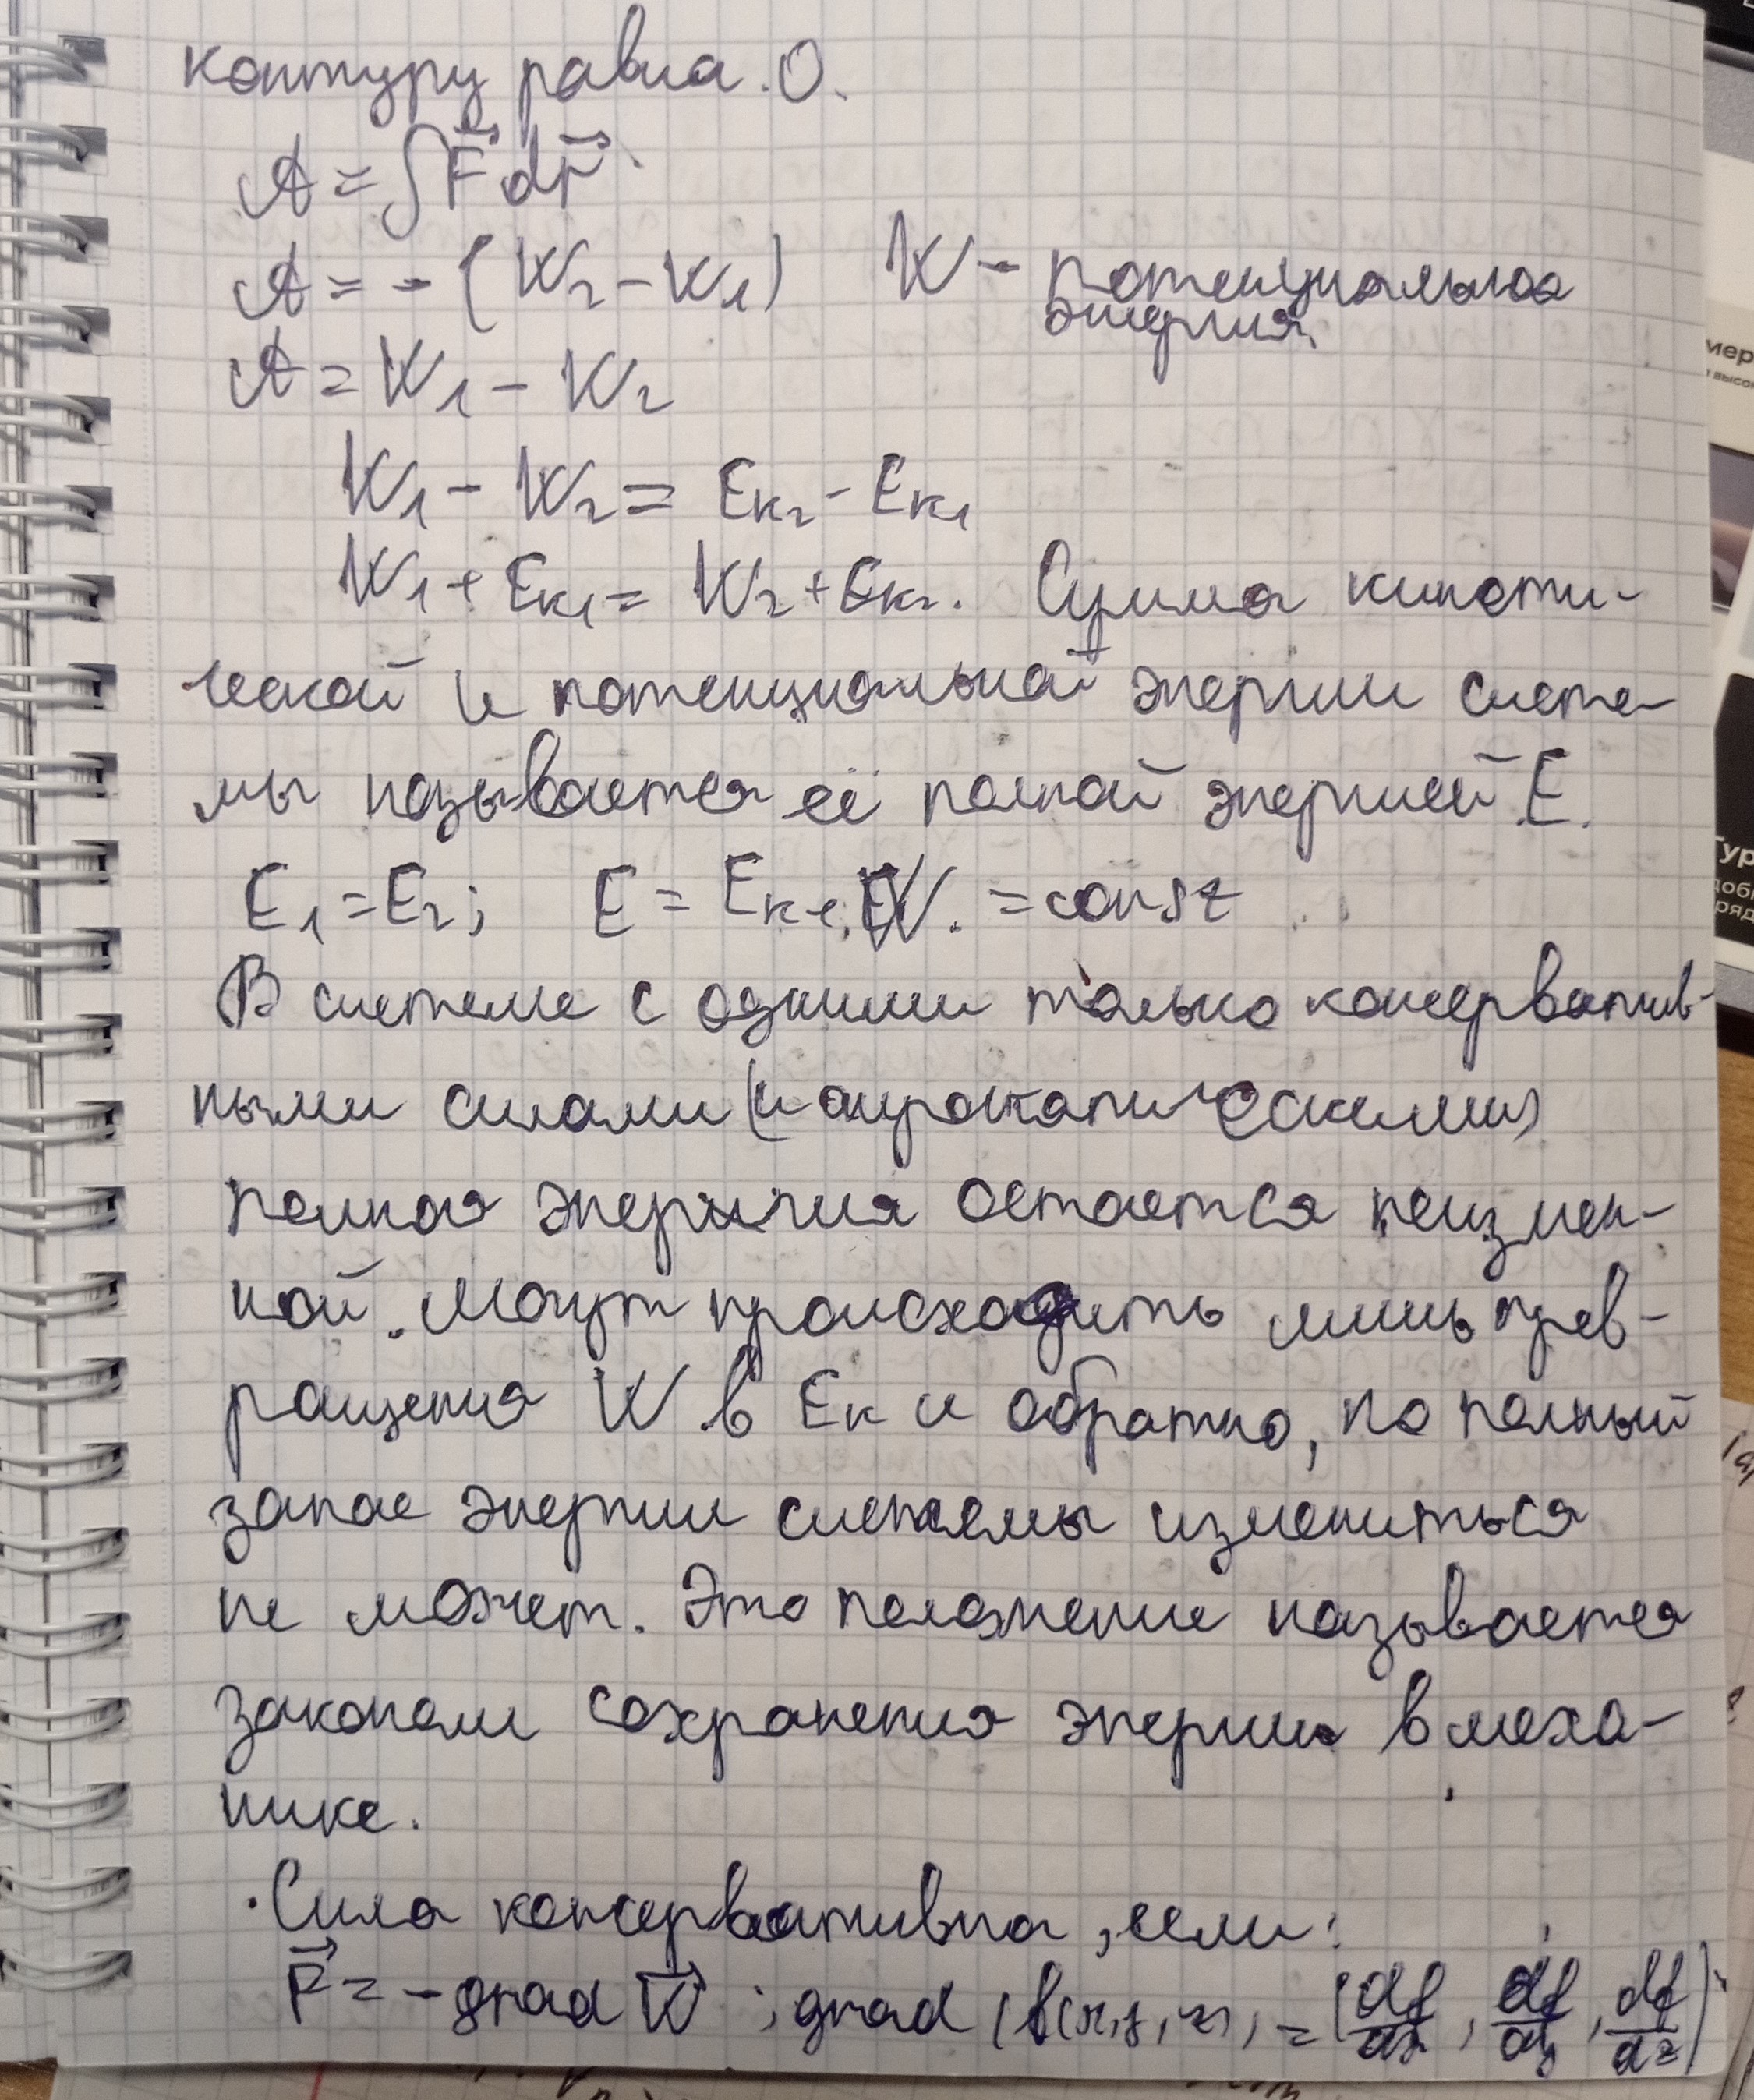 контуру равна 0.
A = ∫F⃗ dr⃗
A = - (W₂ - W₁)    W - потенциальная
энергия.
A = W₁ - W₂
W₁ - W₂ = Eк₂ - Eк₁
W₁ + Eк₁ = W₂ + Eк₂. Сумма кинети-
ческой и потенциальной энергии систе-
мы называется её полной энергией E.
E₁ = E₂; E = Eк + W = const
В системе с одними только консерватив-
ными силами (и гироскопическими)
полная энергия остается неизмен-
ной. Могут происходить лишь прев-
ращения W в Eк и обратно, но полный
запас энергии системы измениться
не может. Это положение называется
законом сохранения энергии в меха-
нике.
· Сила консервативна, если:
F⃗ = - grad W⃗ ; grad (f(x, y, z)) = (df/dx, df/dy, df/dz)
мер
Тур
доб
ряд